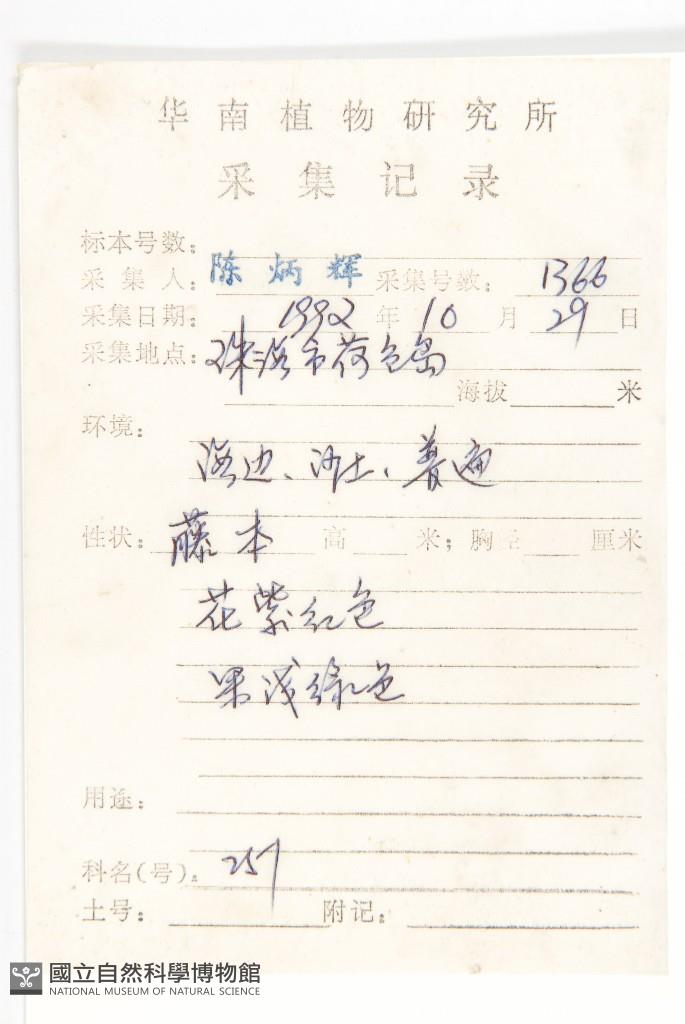 华南植物研究所
采集记录
标本号数:
采集人: 陈炳辉 采集号数: 1366
采集日期: 1992年10月29日
采集地点: 珠海市荷包岛
海拔 米
环境:
海边、沙土、普遍
性状: 藤本 高 米; 胸径 厘米
花紫红色
果浅绿色
用途:
科名(号): 257
土号: 附记:
國立自然科學博物館
NATIONAL MUSEUM OF NATURAL SCIENCE